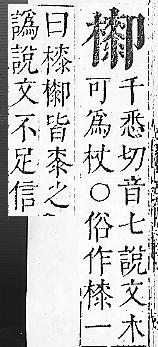 千悉切音七說文木
可爲杖○俗作㯃一
曰㯃皆桼之
譌說文不足信